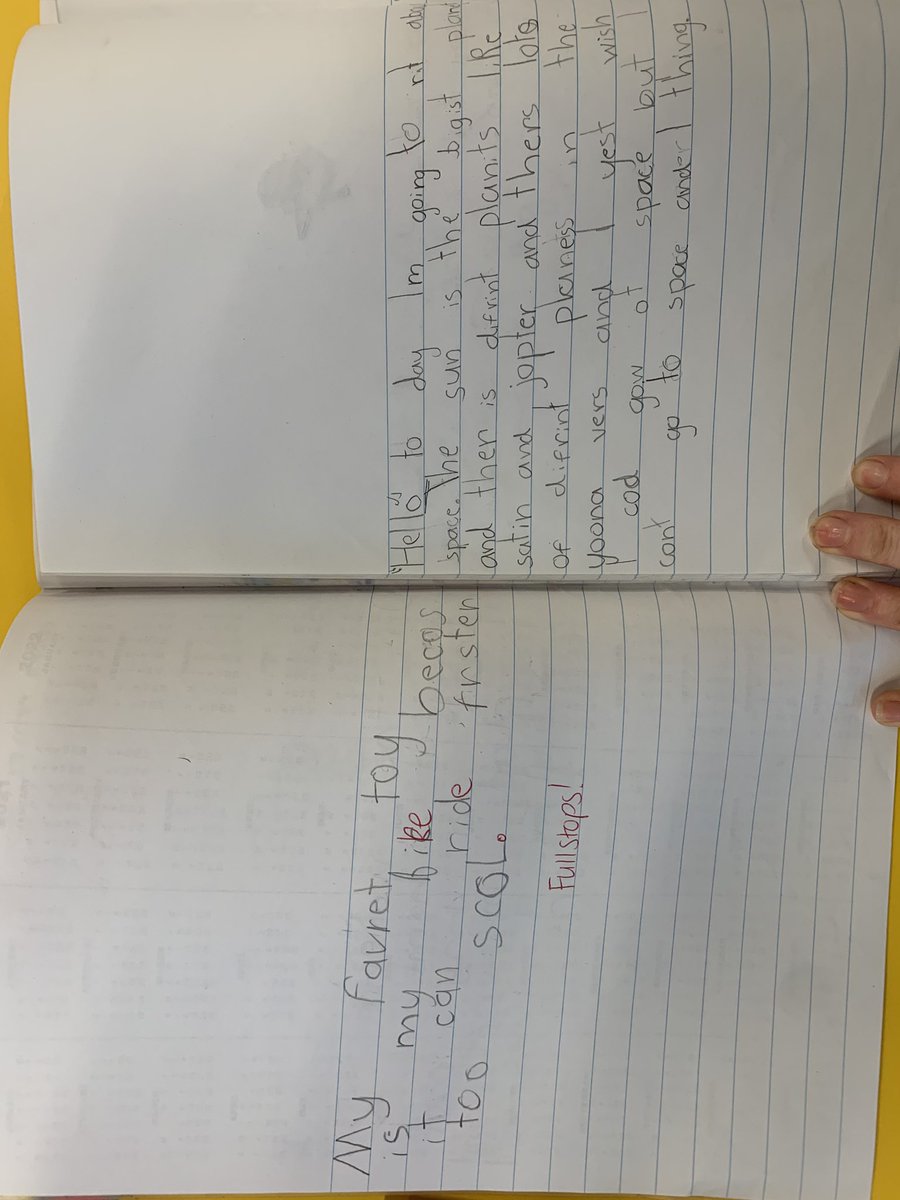 My favret toy
is my bike becos
it can ride frster
too scol.
Fullstops!
"Hello" to day Im going to rit
space. The sun is the bigist
and ther is difrint planits like
satin and jopter and thers lots
of difrint planess in the
yoona vers and I yest wish
I cod gow ot space but I
cant go to space ander I thing.